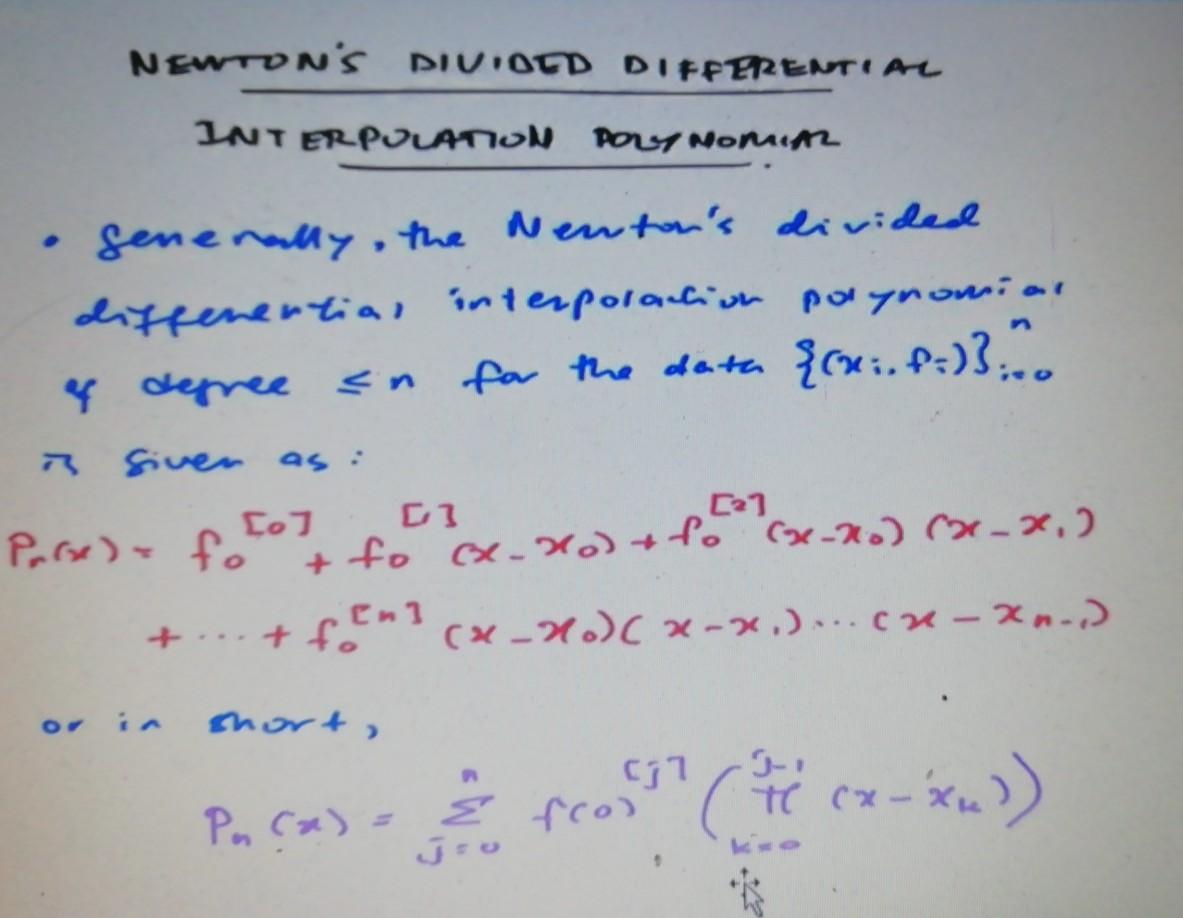 NEWTON'S DIVIDED DIFFERENTIAL
INTERPOLATION POLYNOMIAL.
• Generally, the Newton's divided
differential interpolation polynomial
of degree ≤ n for the data {(xᵢ, fᵢ)}ⁿᵢ₌₀
is given as:
Pₙ(x) = f₀^[0] + f₀^[1] (x - x₀) + f₀^[2] (x - x₀) (x - x₁)
+ ... + f₀^[n] (x - x₀)(x - x₁) ... (x - xₙ₋₁)
or in short,
Pₙ(x) = Σ_{j=0}^{n} f(0)^[j] (π_{k=0}^{j-1} (x - xₖ))